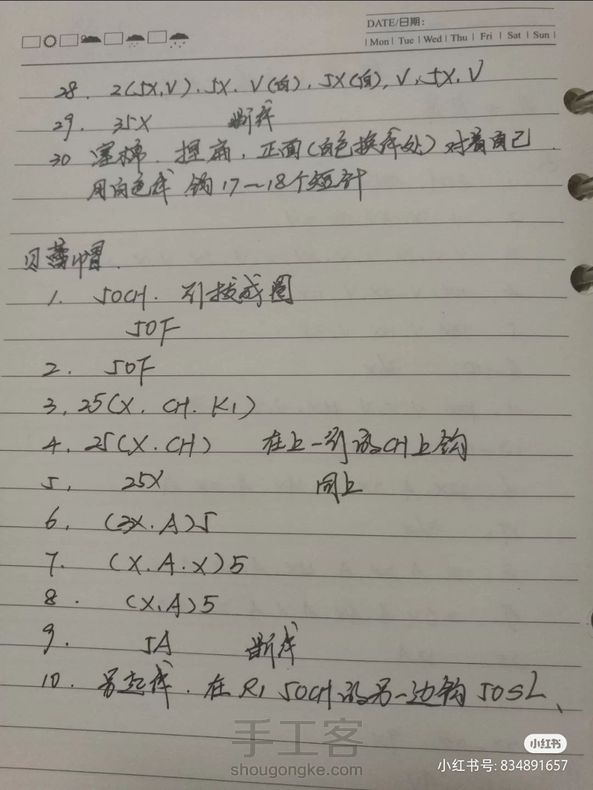 DATE/日期:
Mon Tue Wed Thu Fri Sat Sun
28. 2(5X,V).5X.V(白).5X(白),V、5X.V
29. 35X 断线
30 塞棉.捏扁,正面(白色换线处)对着自己
用白色线 钩17一18个短针
贝蕾帽.
1. 50CH. 引拔成圈
50F
2. 50F
3. 25(X. CH. K1)
4. 25(X.CH) 在上一引的CH上钩
5. 25X 同上
6. (3X.A)5
7. (X.A.X)5
8. (X.A)5
9. 5A 断线
10. 另起线.在R1 50CH的另一边钩50SL、
手工客
shougongke.com
小红书
小红书号: 834891657